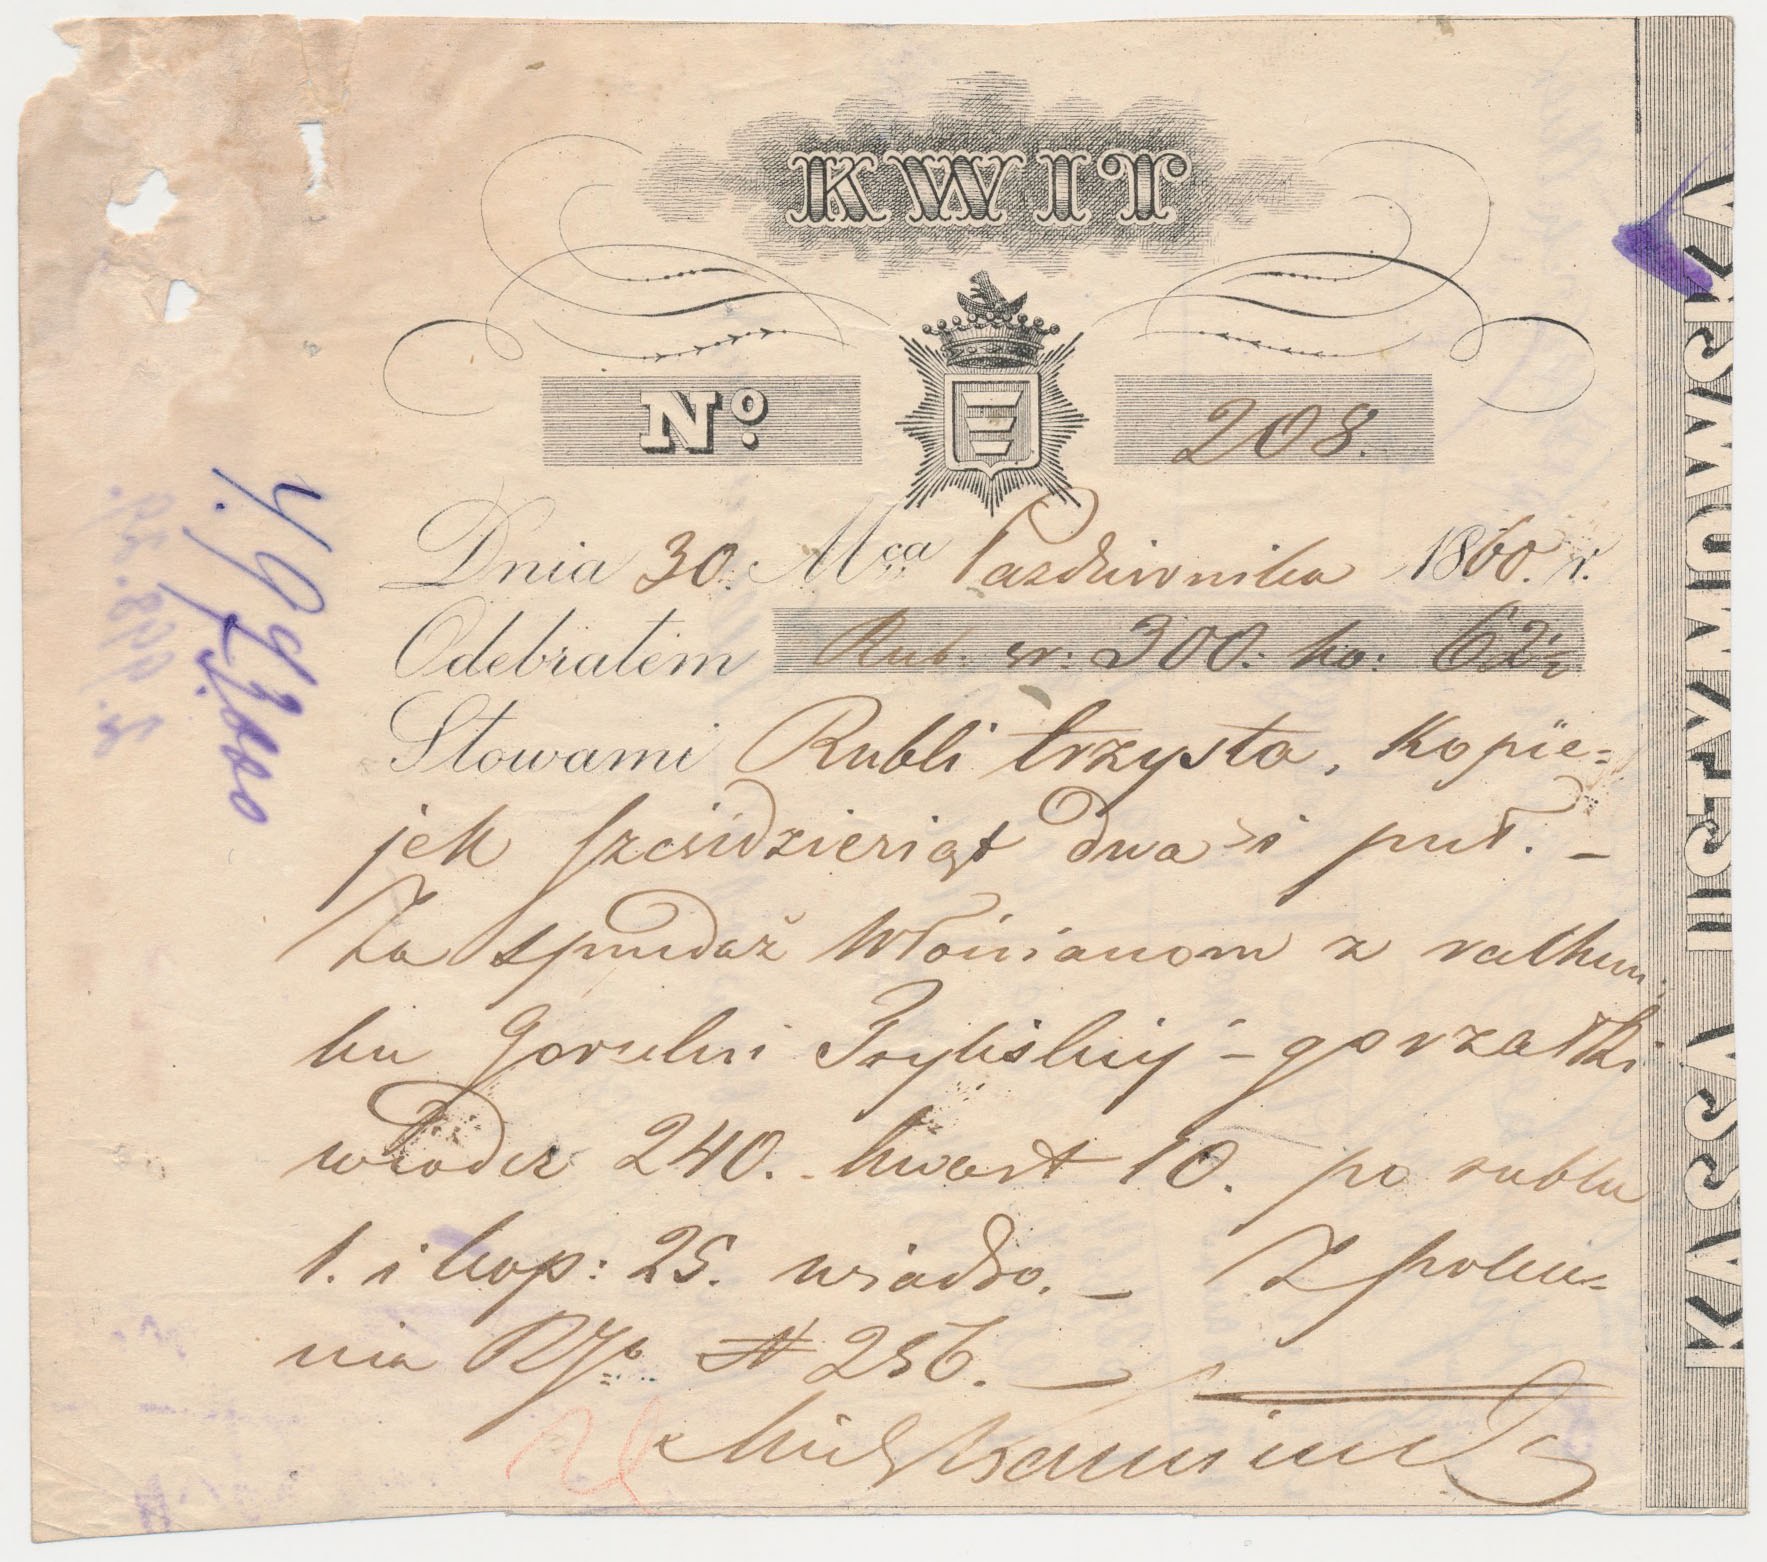 KWIT
No. 208.
Dnia 30. Mca Pazdziernika 1860. r.
Odebrałem Rub: sr: 300: ko: 62½
Słowami Rubli trzysta, Kopie=
jek sześćdziesiąt dwa i puł. –
Za spudaż Włościanom z rachun
ku Goruhni – gorzałki
wiader 240. – kwart 10. po rublu
1. i kop: 25. wiadro. – Z polece=
nia № 256. –
KASSA USTYMOWSKA